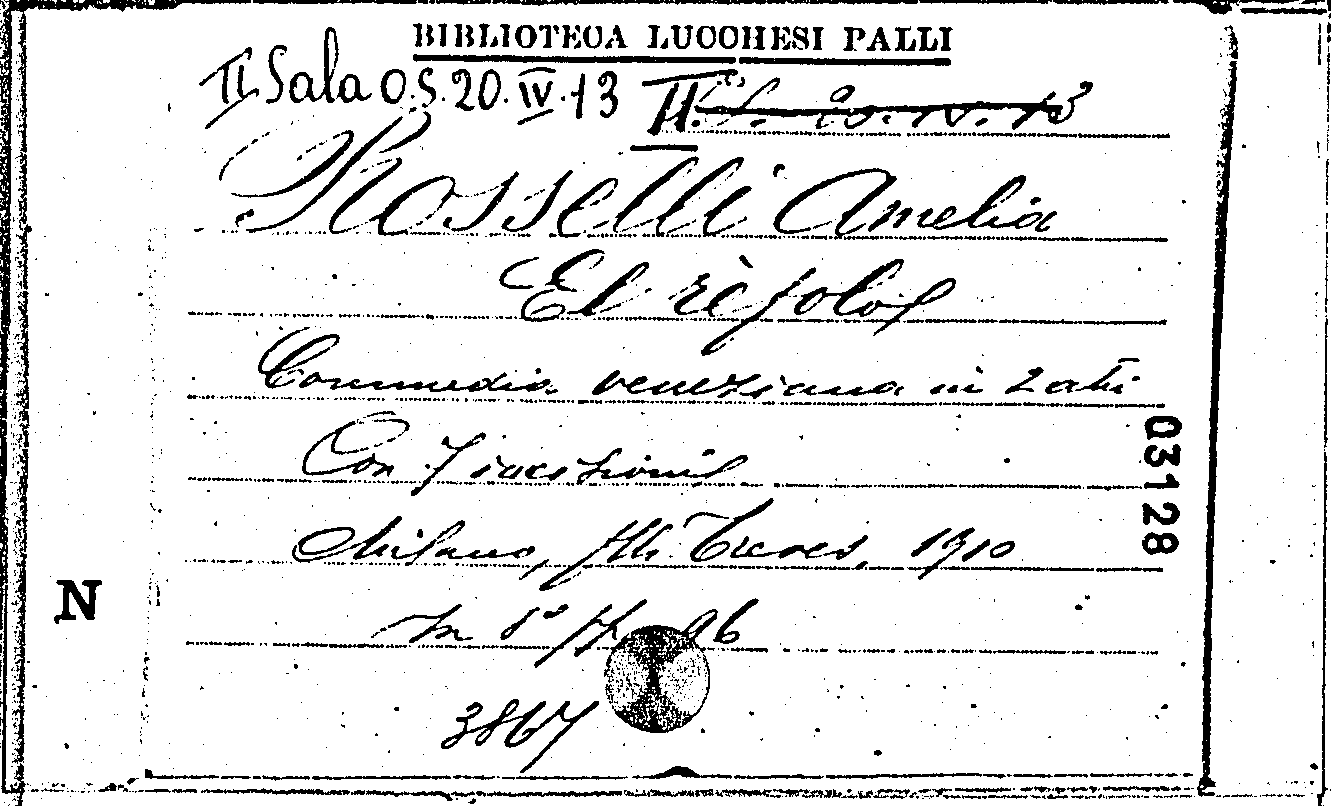 BIBLIOTECA LUCCHESI PALLI
II Sala O.S. 20. IV. 13 II. S. 20. IV. 13
Rosselli Amelia
El rèfolo
Commedia veneziana in 2 atti
Con 7 incisioni
Milano, flli Treves, 1910
In 8° pp. 96
3867
03128
N